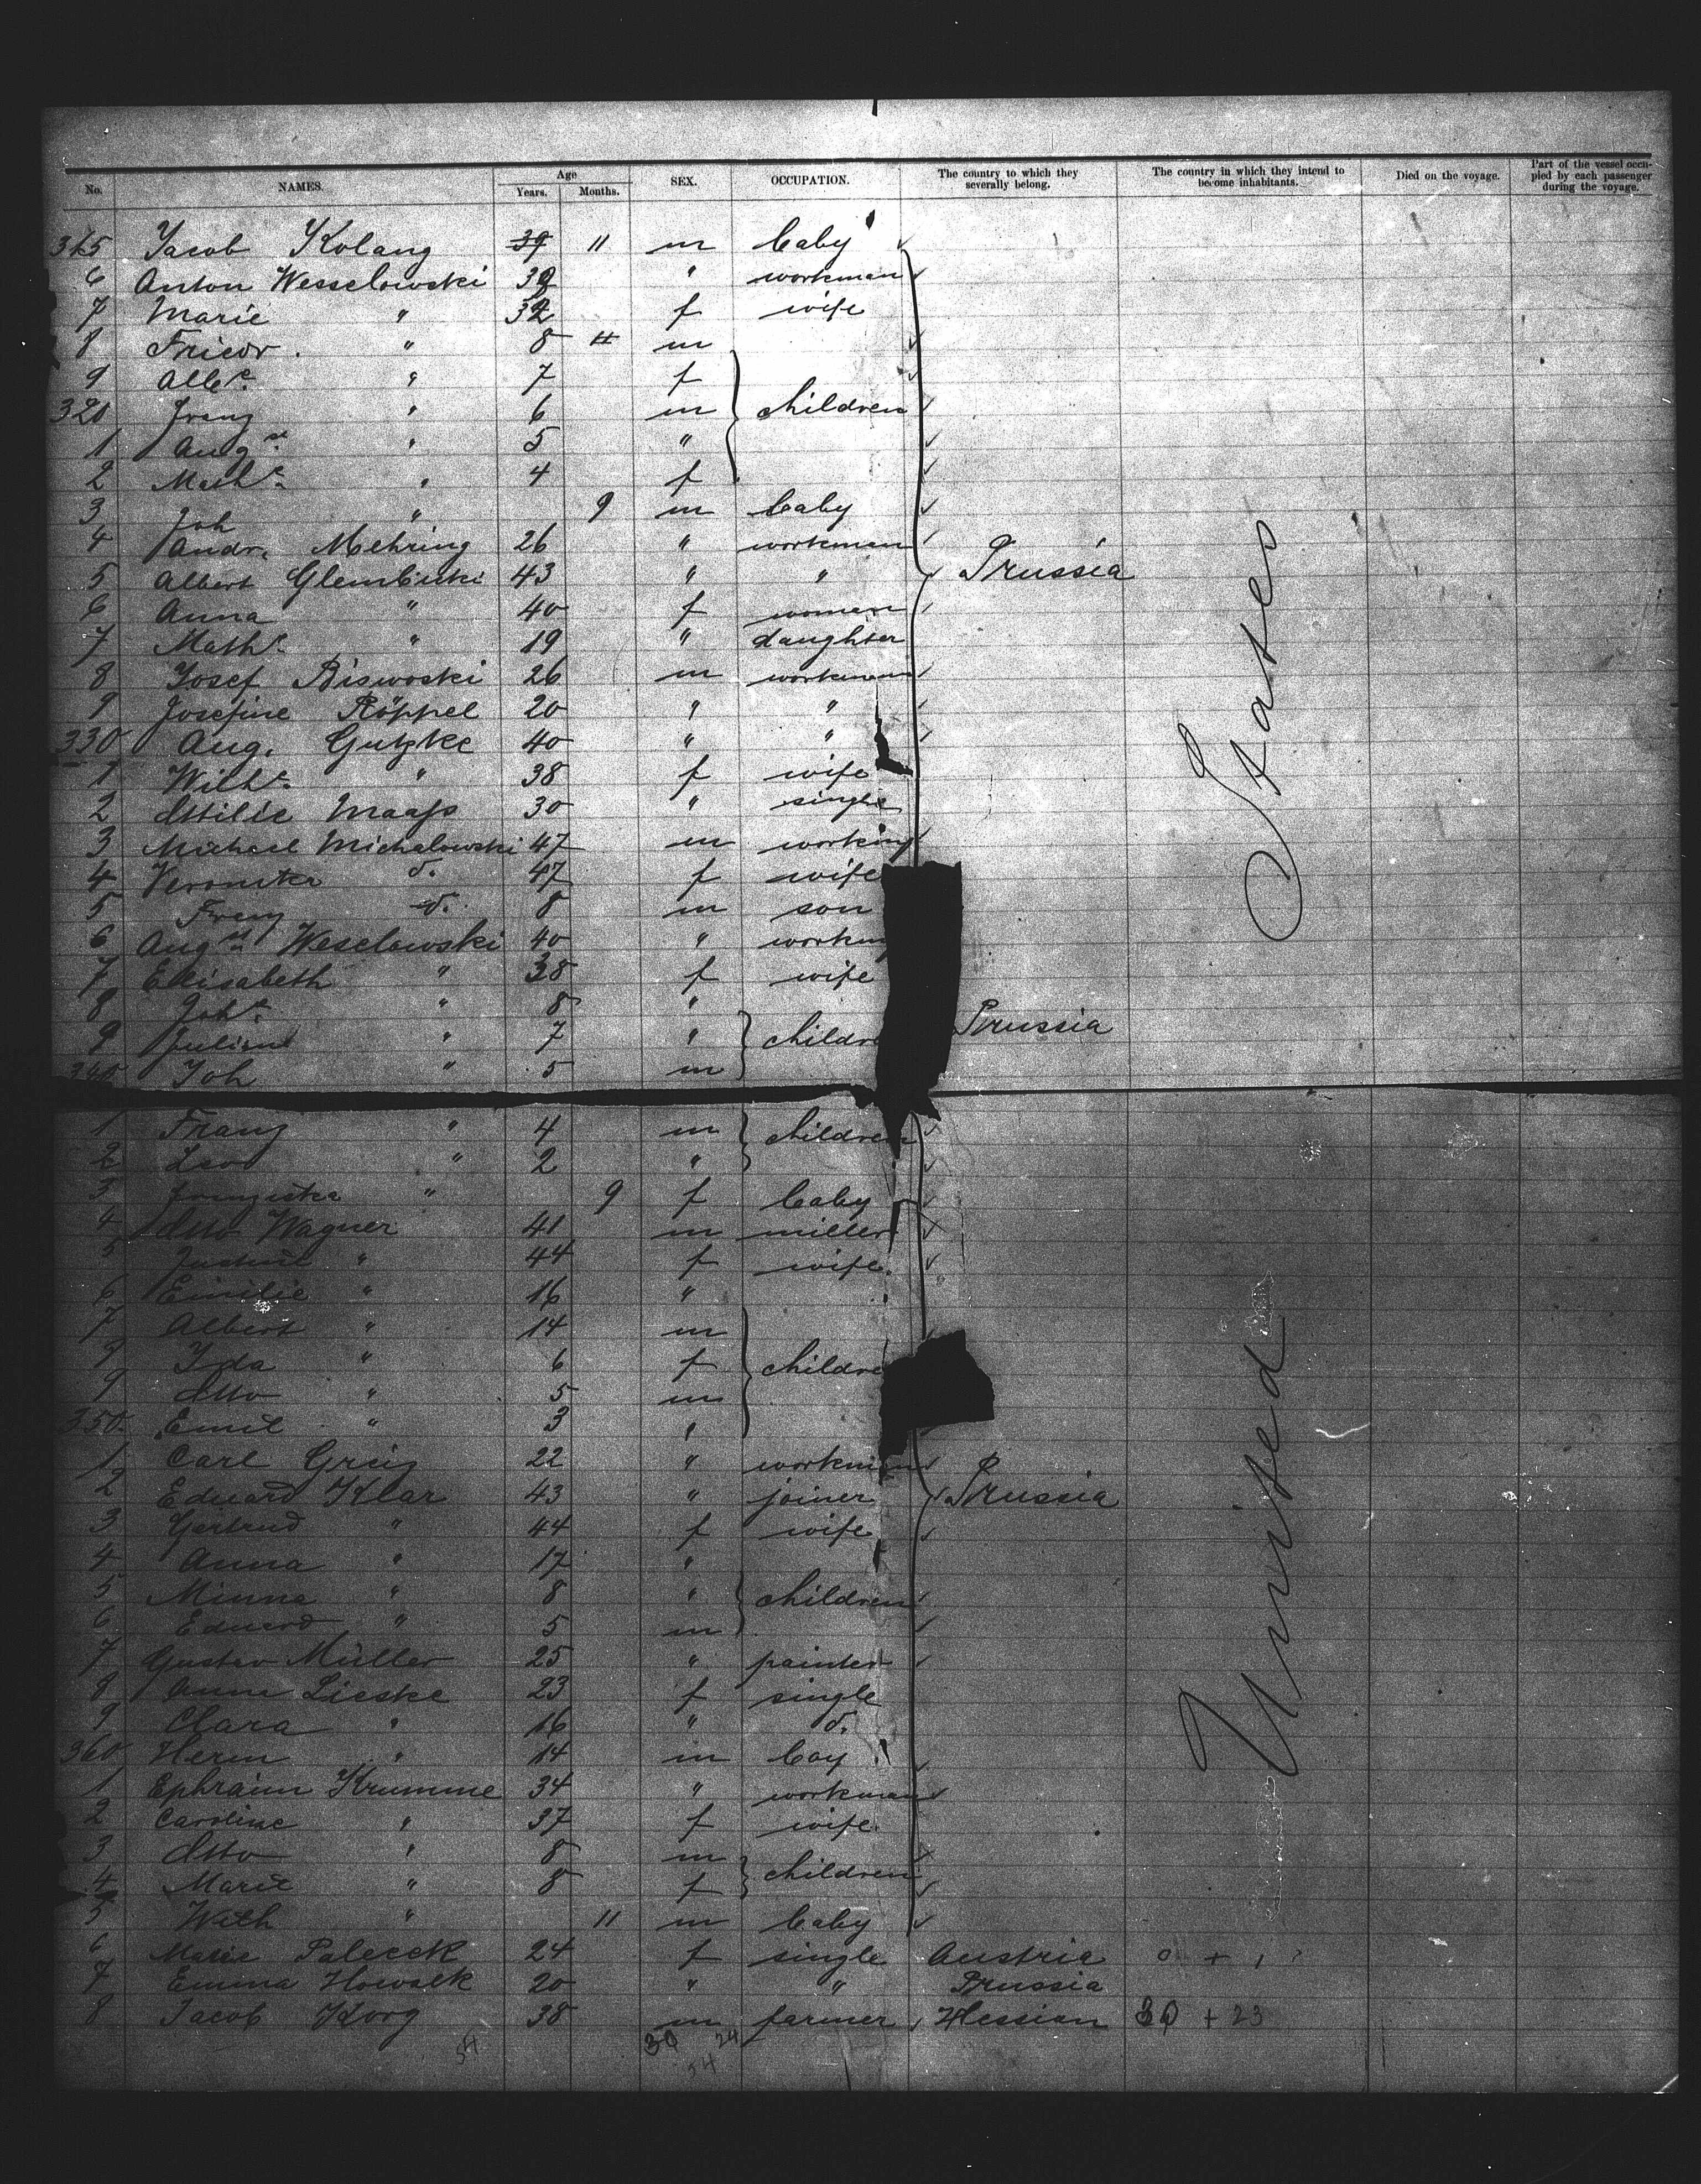 No. NAMES. Age Years. Months. SEX. OCCUPATION. The country to which they severally belong. The country in which they intend to become inhabitants. Died on the voyage. Part of the vessel occupied by each passenger during the voyage.
315 Jacob Kolang 39 11 m baby
6 Anton Wesselowski 39 " workman
7 Marie " 32 f wife
8 Friedr. " 8 11 m
9 Albe. " 7 f
320 Franz " 6 m children
1 Augst. " 5 "
2 Mathe. " 4 f
3 Joh " 9 m baby
4 Andr. Mehring 26 " workman
5 Albert Glembicki 43 " " Prussia
6 Anna " 40 f woman
7 Mathe. " 19 " daughter
8 Josef Riswoski 26 m workman
9 Josefine Röppel 20 " "
330 Aug. Gutzke 40 " "
1 Wilhe. " 38 f wife
2 Ottilie Maass 30 " single
3 Michael Michalowski 47 m working
4 Veronika d. 47 f wife
5 Franz d. 8 m son
6 Augst. Weselowski 40 " workm
7 Elisabeth " 38 f wife
8 Johe. " 8 "
9 Julian " 7 " childre Prussia
340 Joh " 5 m
1 Franz " 4 m children
2 Leo " 2 "
3 Franziska " 9 f baby
4 Otto Wagner 41 m miller
5 Justine " 44 f wife.
6 Emilie " 16 "
7 Albert " 14 m
9 Ida " 6 f childre
9 Otto " 5 m
350 Emil " 3 "
1 Carl Greig 22 " workman
2 Eduard Klar 43 " joiner Prussia
3 Gertrud " 44 f wife
4 Anna " 17 "
5 Minna " 8 " children
6 Eduard " 5 m
7 Gustav Müller 25 " painter
8 Anna Lieske 23 f single
9 Clara " 16 " d.
360 Herm " 14 m boy
1 Ephraim Krumme 34 " workman
2 Caroline " 37 f wife.
3 Otto " 8 m
4 Marie " 8 f children
5 Wilh " 11 m baby
6 Marie Palecek 24 f single Austria 0 + 1
7 Emma Howsek 20 " " Prussia
8 Jacob Korg 38 m farmer Hessian 30 + 23
54 30 24
54
United States